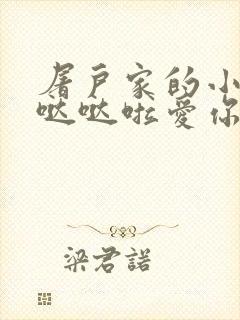 屠户家的小
哒哒啦爱你
梁君諾